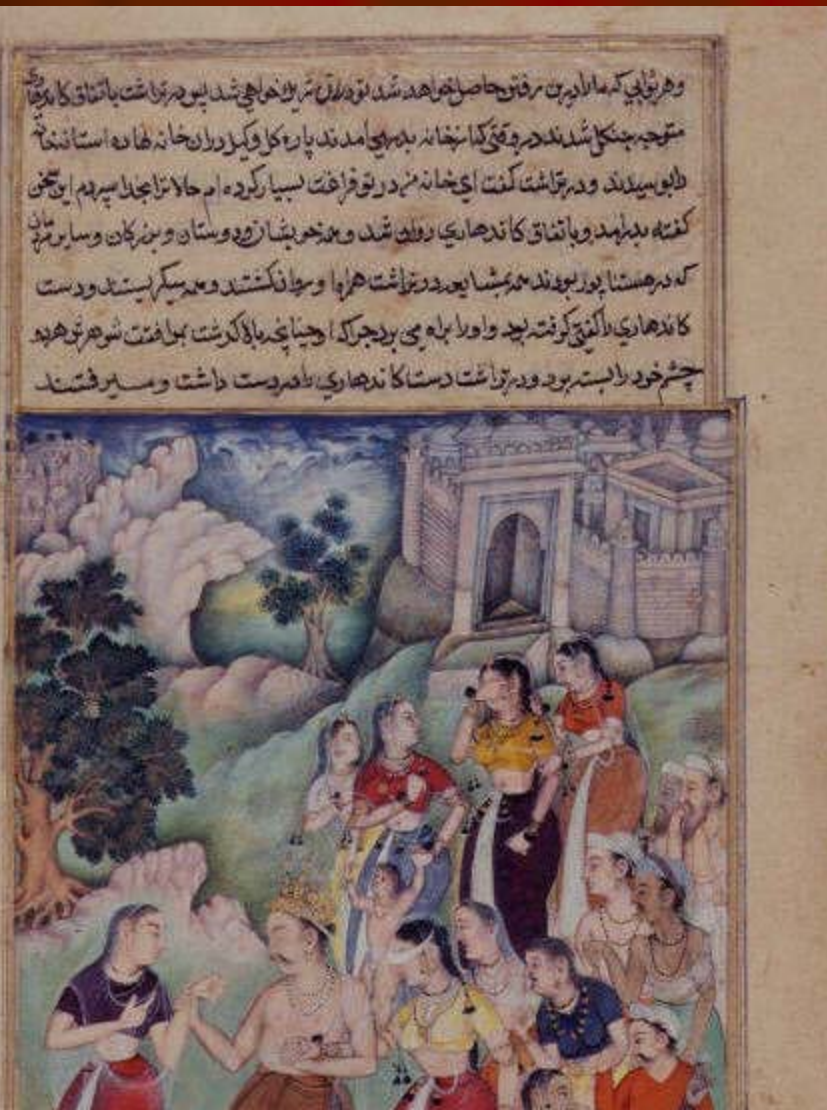 وهر ثوابی که ما را درین رفتن حاصل خواهد شد تو دران شریك خواهی شد پس درتراشت باتفاق کاندهاری
متوجه جنکل شدند در وقتی که از خانه بدر می امدند پاره کل وکیل دران خانه نهاده استانه خانه
را بوسیدند و درتراشت کفت ای خانه من در تو فراغت بسیار کرده ام حالا ترا بخدا سپردم این سخن
کفته بدر امد و باتفاق کاندهاری روان شد و همه خویشان و دوستان و بزرکان وسایر
که در هستناپور بودند همه بمشایعه درتراشت همراه او روان کشتند و همه میکریستند و دست
کاندهاری را کنتی کرفته بود و او را براه می برد چرا که او چنانچه بالا کذشت بموافقت شوهر
چشم خود را بسته بود و درتراشت دست کاندهاری را در دست داشت و میرفتند